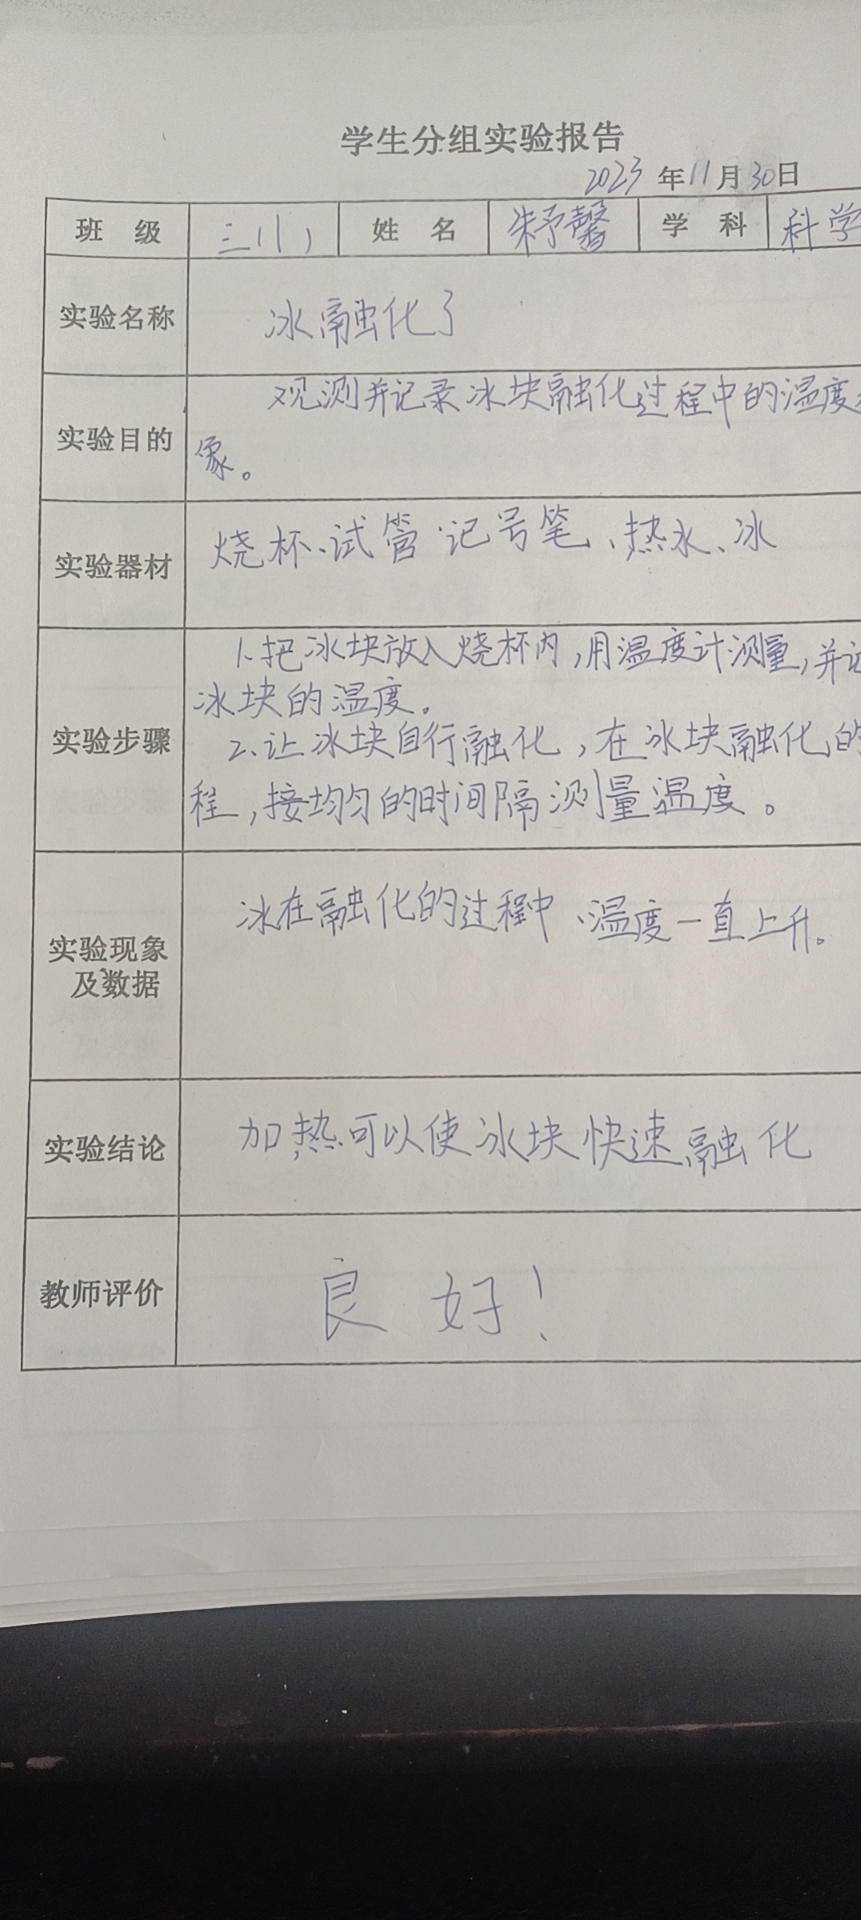 学生分组实验报告
2023年11月30日
班 级 三(1) 姓 名 朱予馨 学 科 科学
实验名称 冰融化了
实验目的 观测并记录冰块融化过程中的温度
象。
实验器材 烧杯、试管、记号笔、热水、冰
实验步骤 1.把冰块放入烧杯内,用温度计测量,并记
冰块的温度。
2.让冰块自行融化,在冰块融化的
程,接均匀的时间隔测量温度。
实验现象及数据 冰在融化的过程中、温度一直上升。
实验结论 加热可以使冰块快速融化
教师评价 良好!